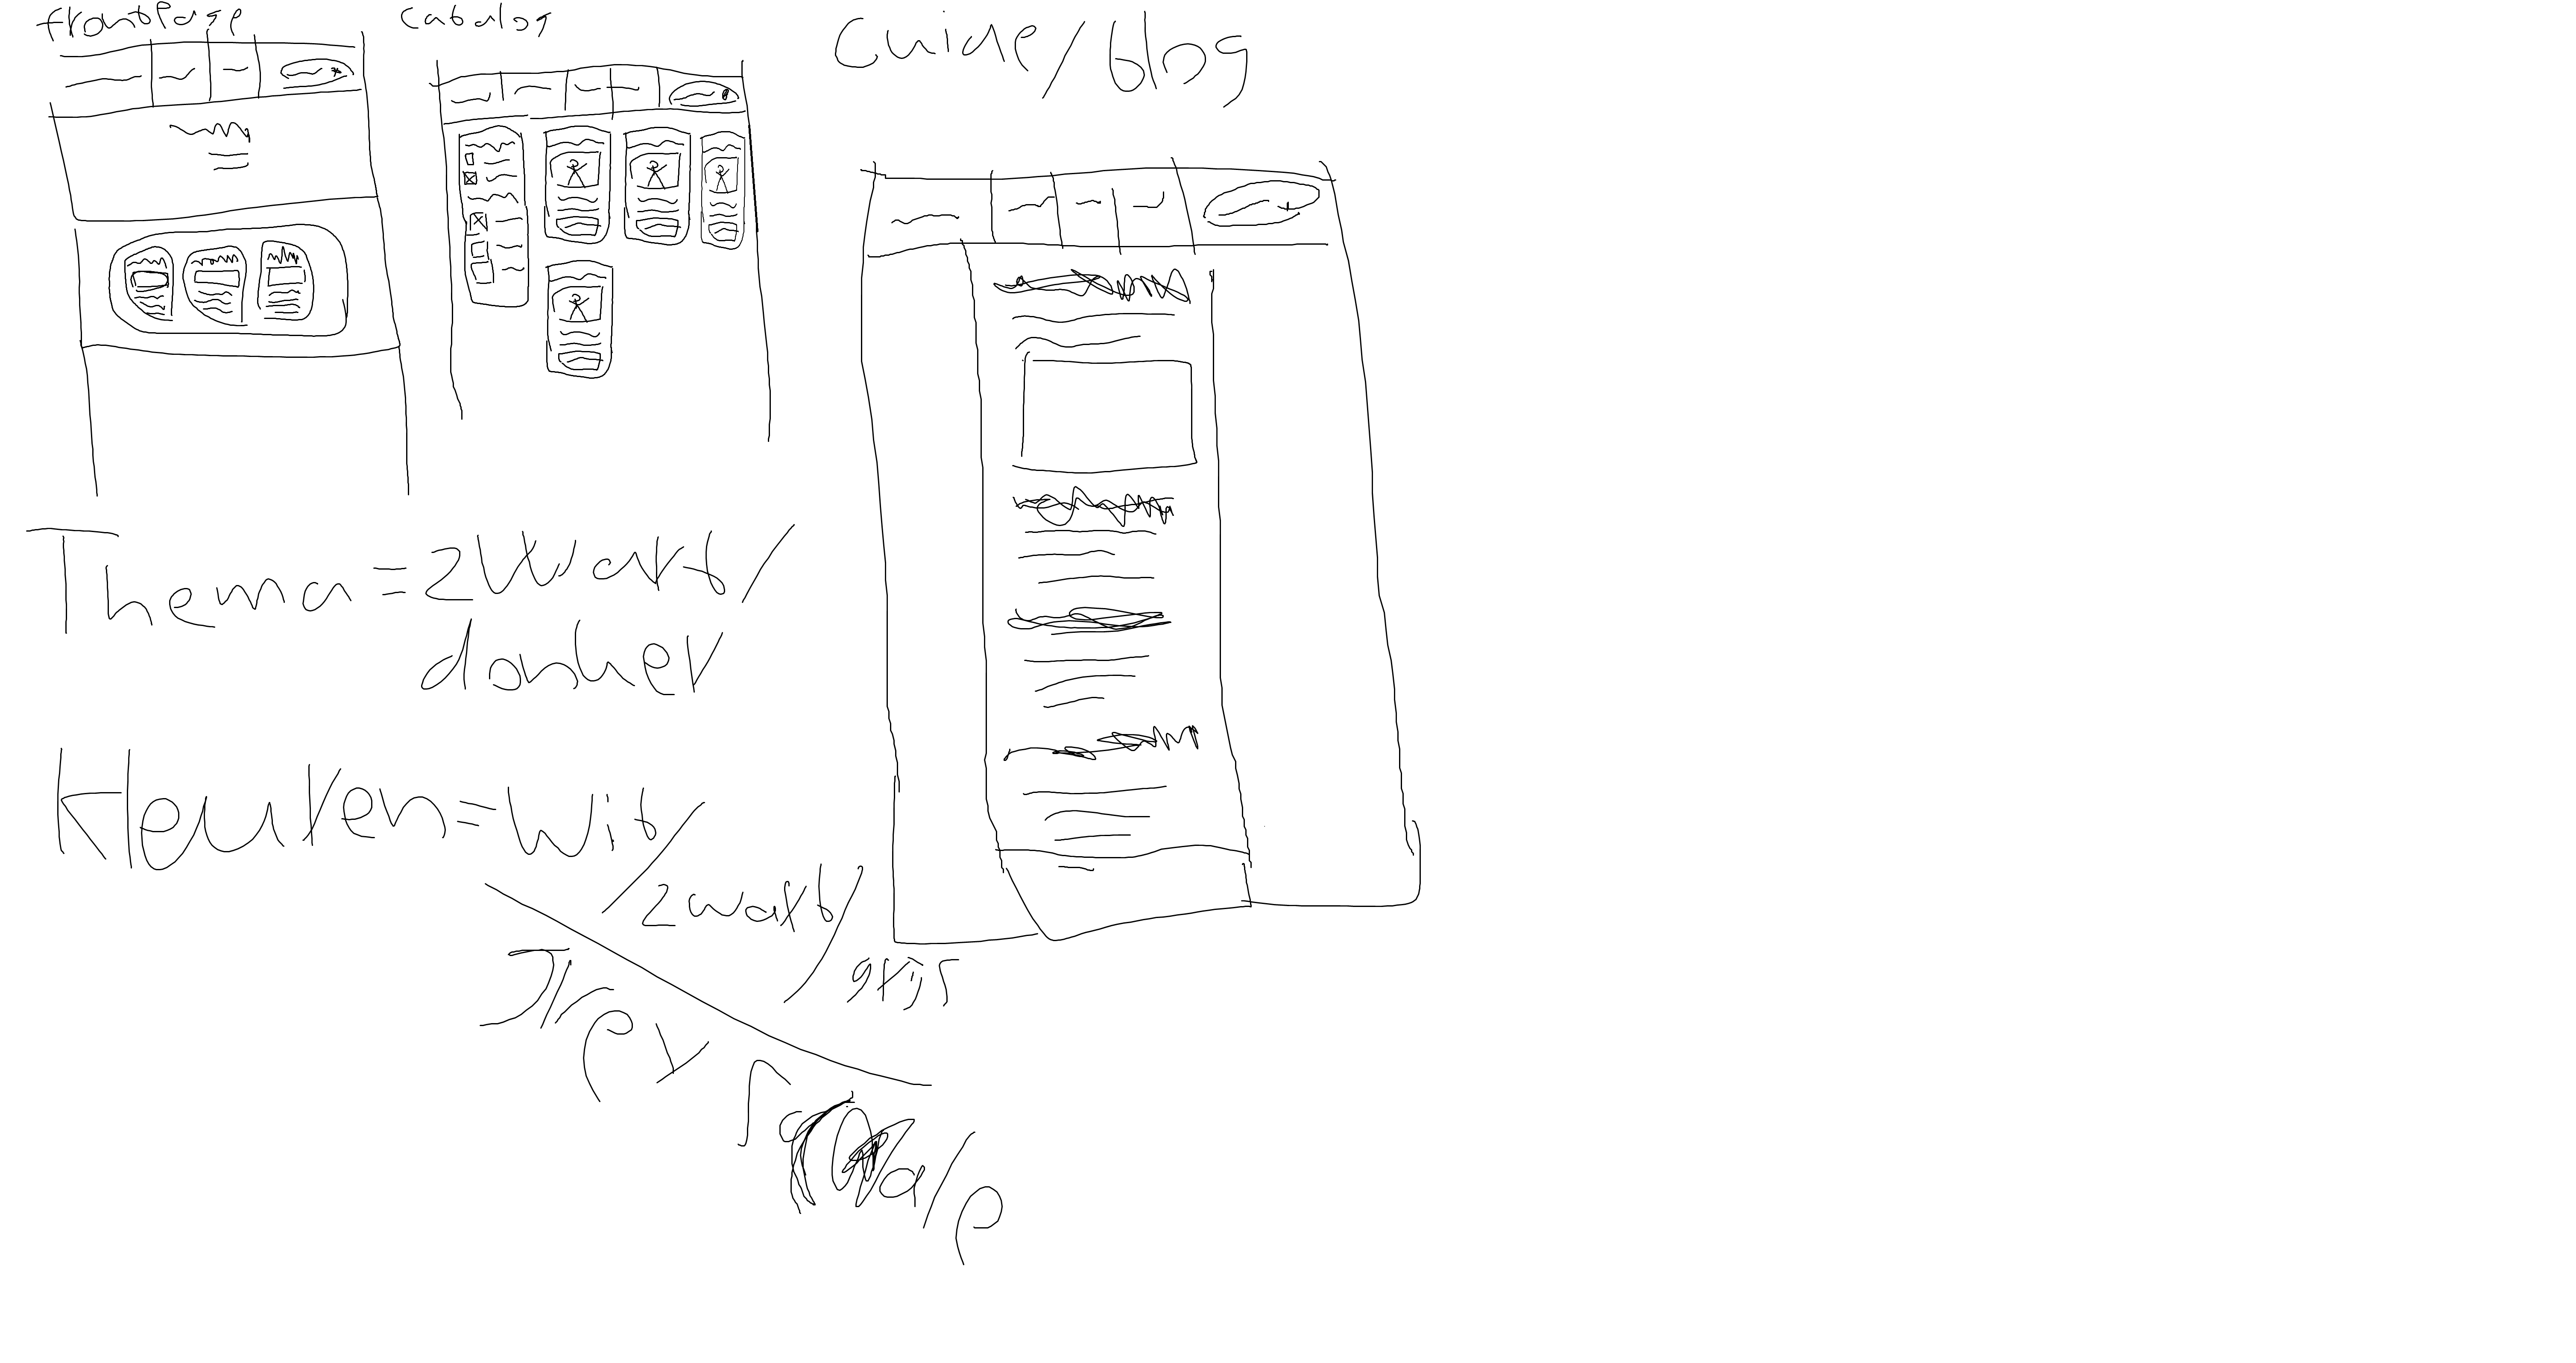 frontPage
catalog
Guide/blog
Thema=Zwart/
donker
Kleuren=Wit
/zwart/
grijs
Grey Scale